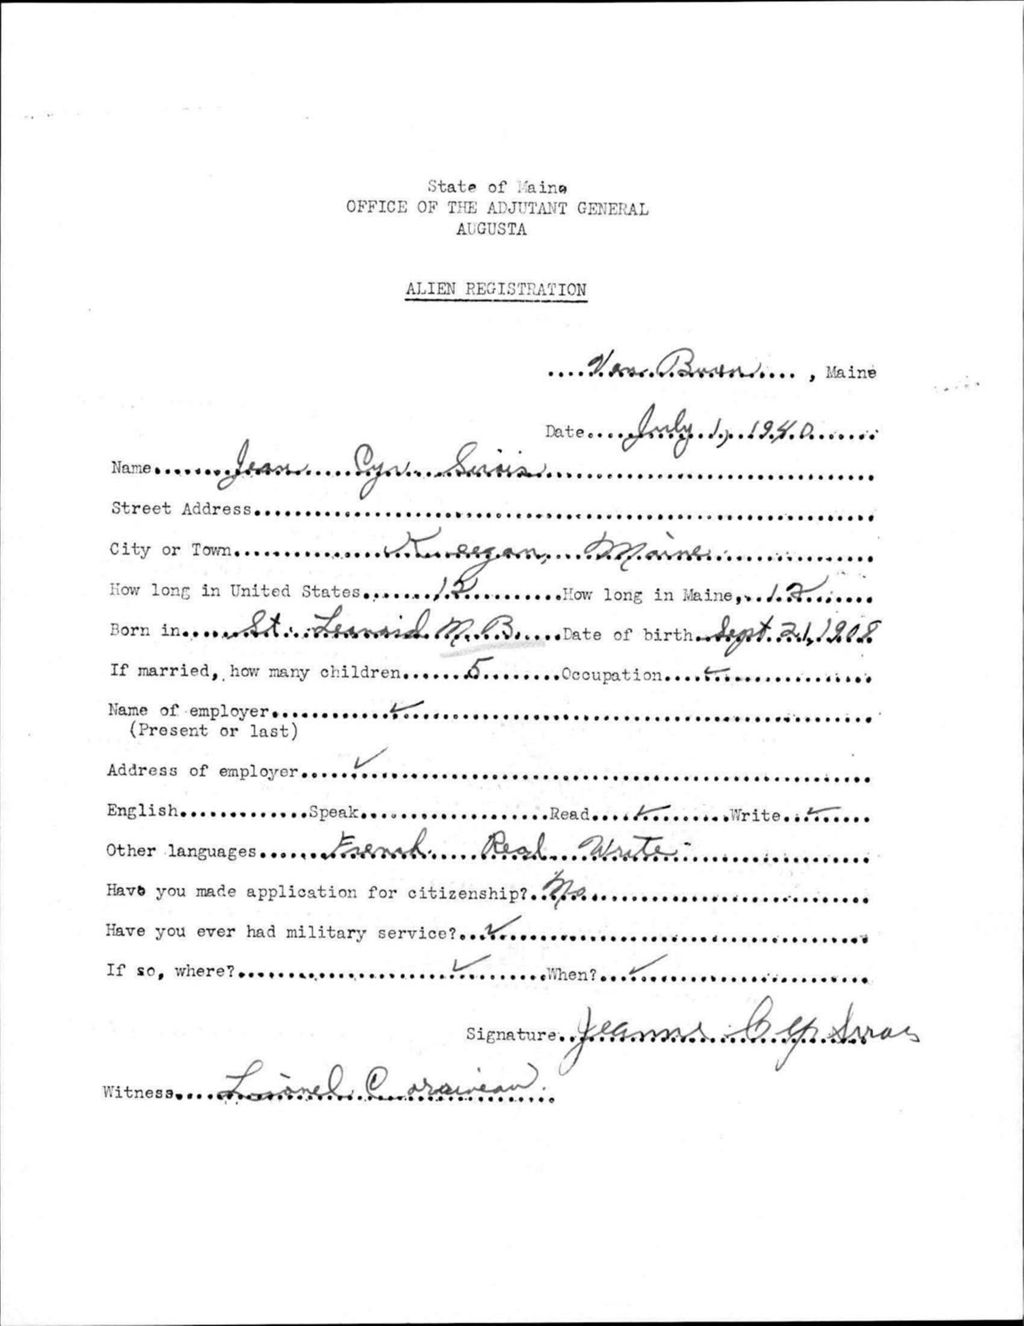 State of Maine
OFFICE OF THE ADJUTANT GENERAL
AUGUSTA
ALIEN REGISTRATION
Van Buren, Maine
Date July 1, 1940
Name Jean Cyr Sirois
Street Address
City or Town Keegan, Maine
How long in United States 12 How long in Maine, 12
Born in St. Leonard N.B. Date of birth Sept. 21, 1908
If married, how many children 5 Occupation ✓
Name of employer ✓
(Present or last)
Address of employer ✓
English Speak Read ✓ Write ✓
Other languages French Read Write
Have you made application for citizenship? No
Have you ever had military service? ✓
If so, where? ✓ When? ✓
Signature Jeanne Cyr Sirois
Witness Lionel Cormeau